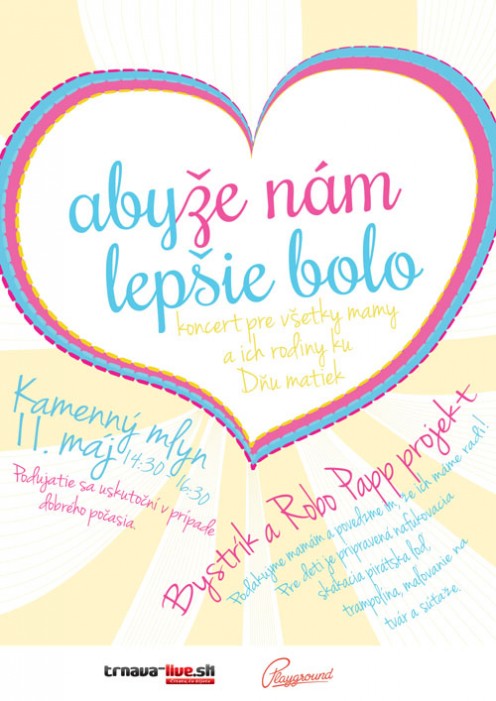 abyže nám
lepšie bolo
koncert pre všetky mamy
a ich rodiny ku
Dňu matiek
Kamenný mlyn
11. máj 14:30 - 16:30
Podujatie sa uskutoční v prípade
dobrého počasia.
Bystrík a Robo Papp projekt
Poďakujme mamám a povedzme im, že ich máme radi!
Pre deti je pripravená nafukovacia
skákacia pirátska loď,
trampolína, maľovanie na
tvár a súťaže.
trnava-live.sk
Playground